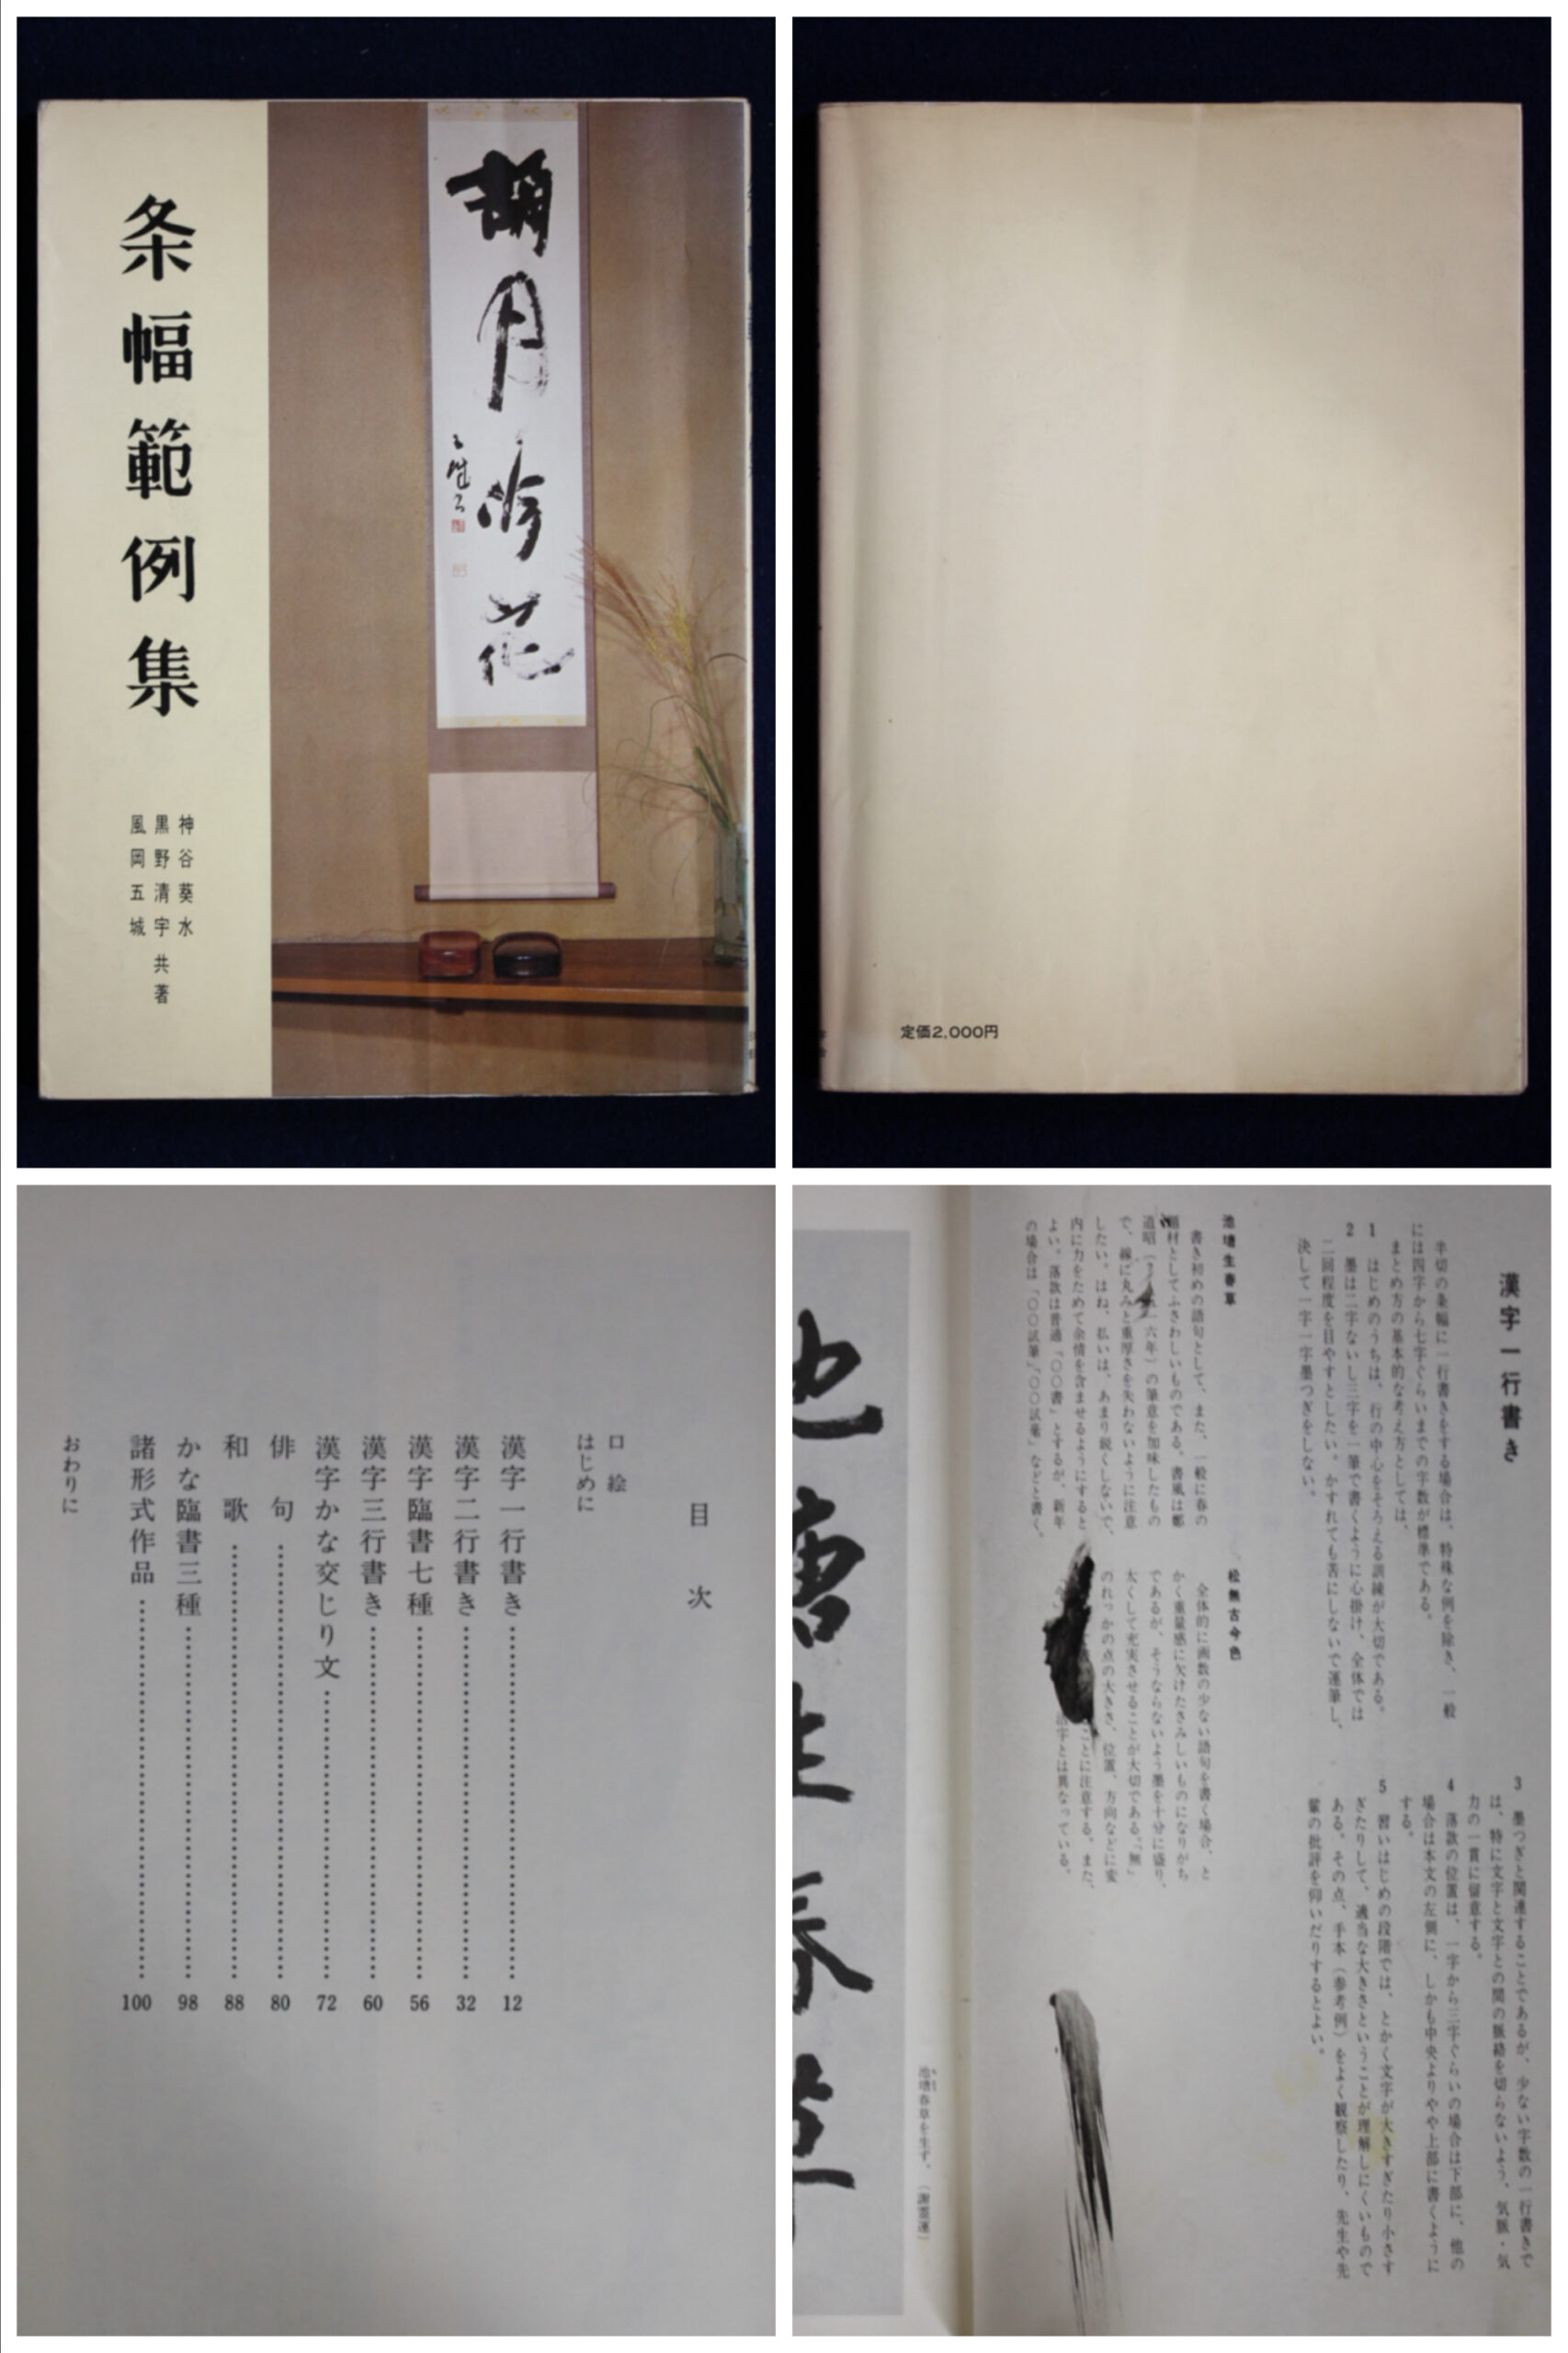 条幅範例集
神谷葵水
黒野清宇 共著
風岡五城
月
花
定価2,000円
目次
口絵
はじめに
漢字一行書き 12
漢字二行書き 32
漢字臨書七種 56
漢字三行書き 60
漢字かな交じり文 72
俳句 80
和歌 88
かな臨書三種 98
諸形式作品 100
おわりに
漢字一行書き
半切の条幅に一行書きをする場合は、特殊な例を除き、一般
には四字から七字ぐらいまでの字数が標準である。
まとめ方の基本的な考え方としては、
1 はじめのうちは、行の中心をそろえる訓練が大切である。
2 墨は二字ないし三字を一筆で書くように心掛け、全体では
二回程度を目やすとしたい。かすれても苦にしないで運筆し、
決して一字一字墨つぎをしない。
3 墨つぎと関連することであるが、少ない字数の一行書きで
は、特に文字と文字との間の脈絡を切らないよう、気脈・気
力の一貫に留意する。
4 落款の位置は、一字から三字ぐらいの場合は下部に、他の
場合は本文の左側に、しかも中央よりやや上部に書くように
する。
5 習いはじめの段階では、とかく文字が大きすぎたり小さす
ぎたりして、適当な大きさということが理解しにくいもので
ある。その点、手本（参考例）をよく観察したり、先生や先
輩の批評を仰いだりするとよい。
池塘生春草
書き初めの語句として、また、一般に春の
題材としてふさわしいものである。書風は鄭
道昭（ 一六年）の筆意を加味したもの
で、線に丸みと重厚さを失わないように注意
したい。はね、払いは、あまり鋭くしないで、
内に力をためて余情を含ませるようにすると
よい。落款は普通「〇〇書」とするが、新年
の場合は「〇〇試筆」「〇〇試毫」などと書く。
松無古今色
全体的に画数の少ない語句を書く場合、と
かく重量感に欠けたさみしいものになりがち
であるが、そうならないよう墨を十分に盛り、
太くして充実させることが大切である。「無」
のれっかの点の大きさ、位置、方向などに変
ことに注意する。また、
活字とは異なっている。
池塘生春草
池塘春草を生ず。（謝霊運）